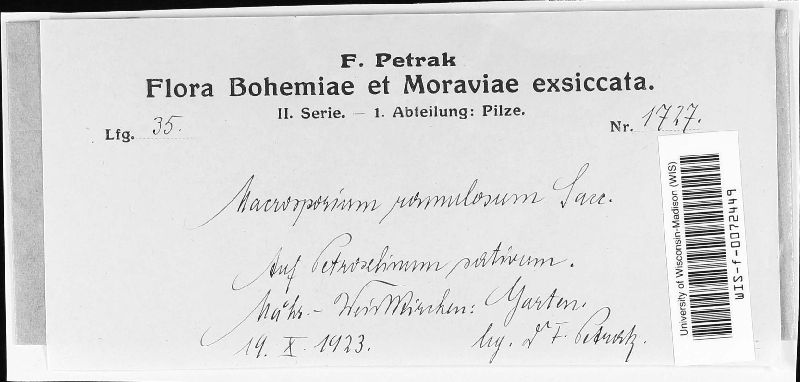 F. Petrak
Flora Bohemiae et Moraviae exsiccata.
II. Serie. – 1. Abteilung: Pilze.
Lfg. 35.
Nr. 1727.
Macrosporium ramulosum Sacc.
Auf Petroselinum sativum.
Mähr.-Weisskirchen: Garten.
19. X. 1923.
leg. Dr F. Petrak.
University of Wisconsin-Madison (WIS)
WIS-f-0072449